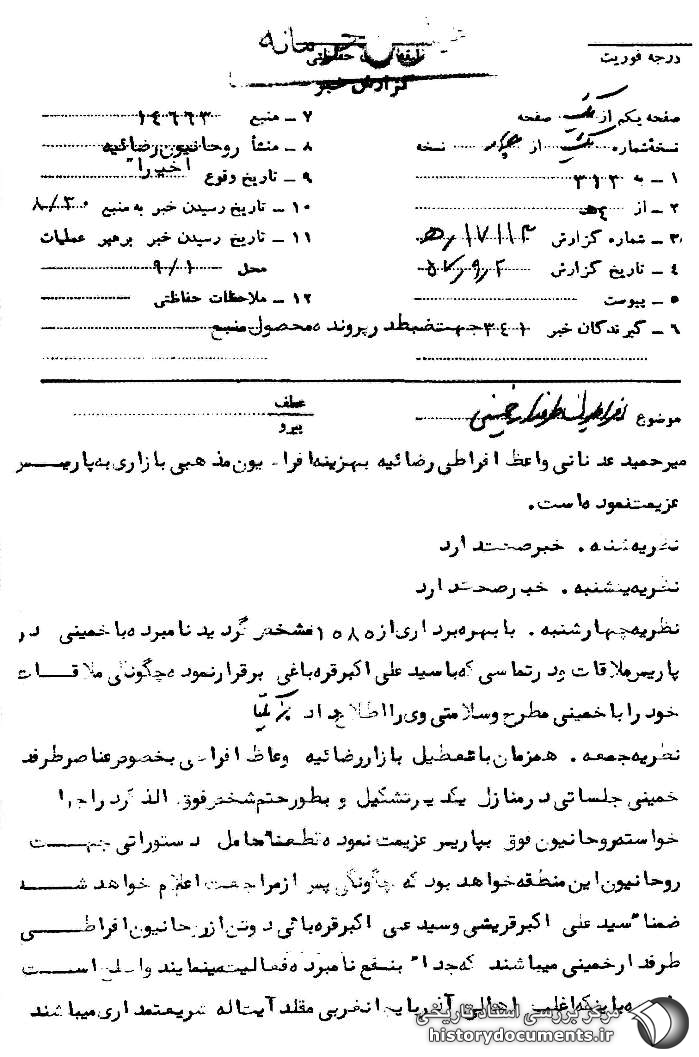 خیلی محرمانه
درجه فوریت
طبقه‌بندی حفاظتی
گزارش خبر
صفحه یکم از یک صفحه
نسخه شماره یک از چهار نسخه
۱ ـ به ۳۱۲
۲ ـ از ه‍ ۴
۳ ـ شماره گزارش ۱۷۱۱۲/ه‍
۴ ـ تاریخ گزارش ۵۷/۹/۲
۵ ـ پیوست
۶ ـ گیرندگان خبر ۳۴۱ جهت ضبط در پرونده محصول منبع
۷ ـ منبع ۱۴۶۶۳
۸ ـ منشأ روحانیون رضائیه
۹ ـ تاریخ وقوع اخیرا"
۱۰ ـ تاریخ رسیدن خبر به منبع ۸/۳۰
۱۱ ـ تاریخ رسیدن خبر برهبر عملیات
محل ۹/۱
۱۲ ـ ملاحظات حفاظتی
موضوع افراطیون طرفدار خمینی
عطف
پیرو
میرحمید عدنانی واعظ افراطی رضائیه بهزینه افراطیون مذهبی بازاری به پاریس
عزیمت نموده است.
نظریه شنبه . خبر صحت دارد
نظریه یکشنبه . خبر صحت دارد
نظریه چهارشنبه . با بهره برداری از ۱۰۸۵ مشخص گردید نامبرده با خمینی در
پاریس ملاقات و در تماسی که با سید علی اکبر قره باغی برقرار نموده چگونگی ملاقات
خود را با خمینی مطرح و سلامتی وی را اطلاع داد
نظریه جمعه . همزمان با تعطیل بازار رضائیه وعاظ افراطی بخصوص عناصر طرفدار
خمینی جلساتی در منازل یکدیگر تشکیل و بطور حتم شخص فوق الذکر را بنا
خواسته روحانیون فوق بپاریس عزیمت نموده قطعنا" حامل دستوراتی جهت
روحانیون این منطقه خواهد بود که چگونگی پس از مراجعت اعلام خواهد شد
ضمنا" سید علی اکبر قریشی و سید علی اکبر قره باغی دو تن از روحانیون افراطی
طرفدار خمینی میباشند که جدا" بنفع نامبرده فعالیت مینمایند
باینکه اغلب اهالی آذربایجانغربی مقلد آیت اله شریعتمداری میباشند
مرکز بررسی اسناد تاریخی
historydocuments.ir